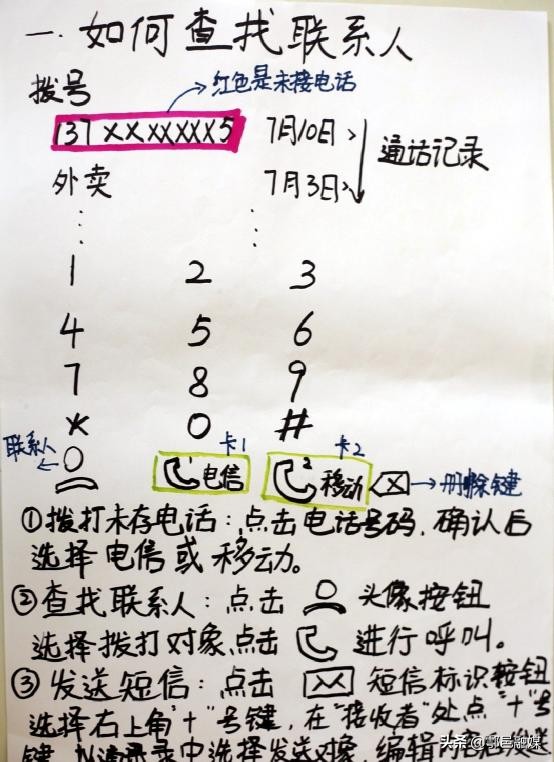 一.如何查找联系人
拨号
红色是未接电话
137XXXXXXX5 7月10日
通话记录
外卖 7月3日
1 2 3
4 5 6
7 8 9
* 0 #
联系人
卡1 卡2
1 电信 2 移动
删除键
①拨打未存电话:点击电话号码,确认后
选择电信或移动。
②查找联系人:点击 头像按钮
选择拨打对象点击 进行呼叫。
③发送短信:点击 短信标识按钮
选择右上角"十"号键,在"接收者"处点"十"号
键,从通讯录中选择发送对象,编辑内容后发送
头条@鄠邑融媒